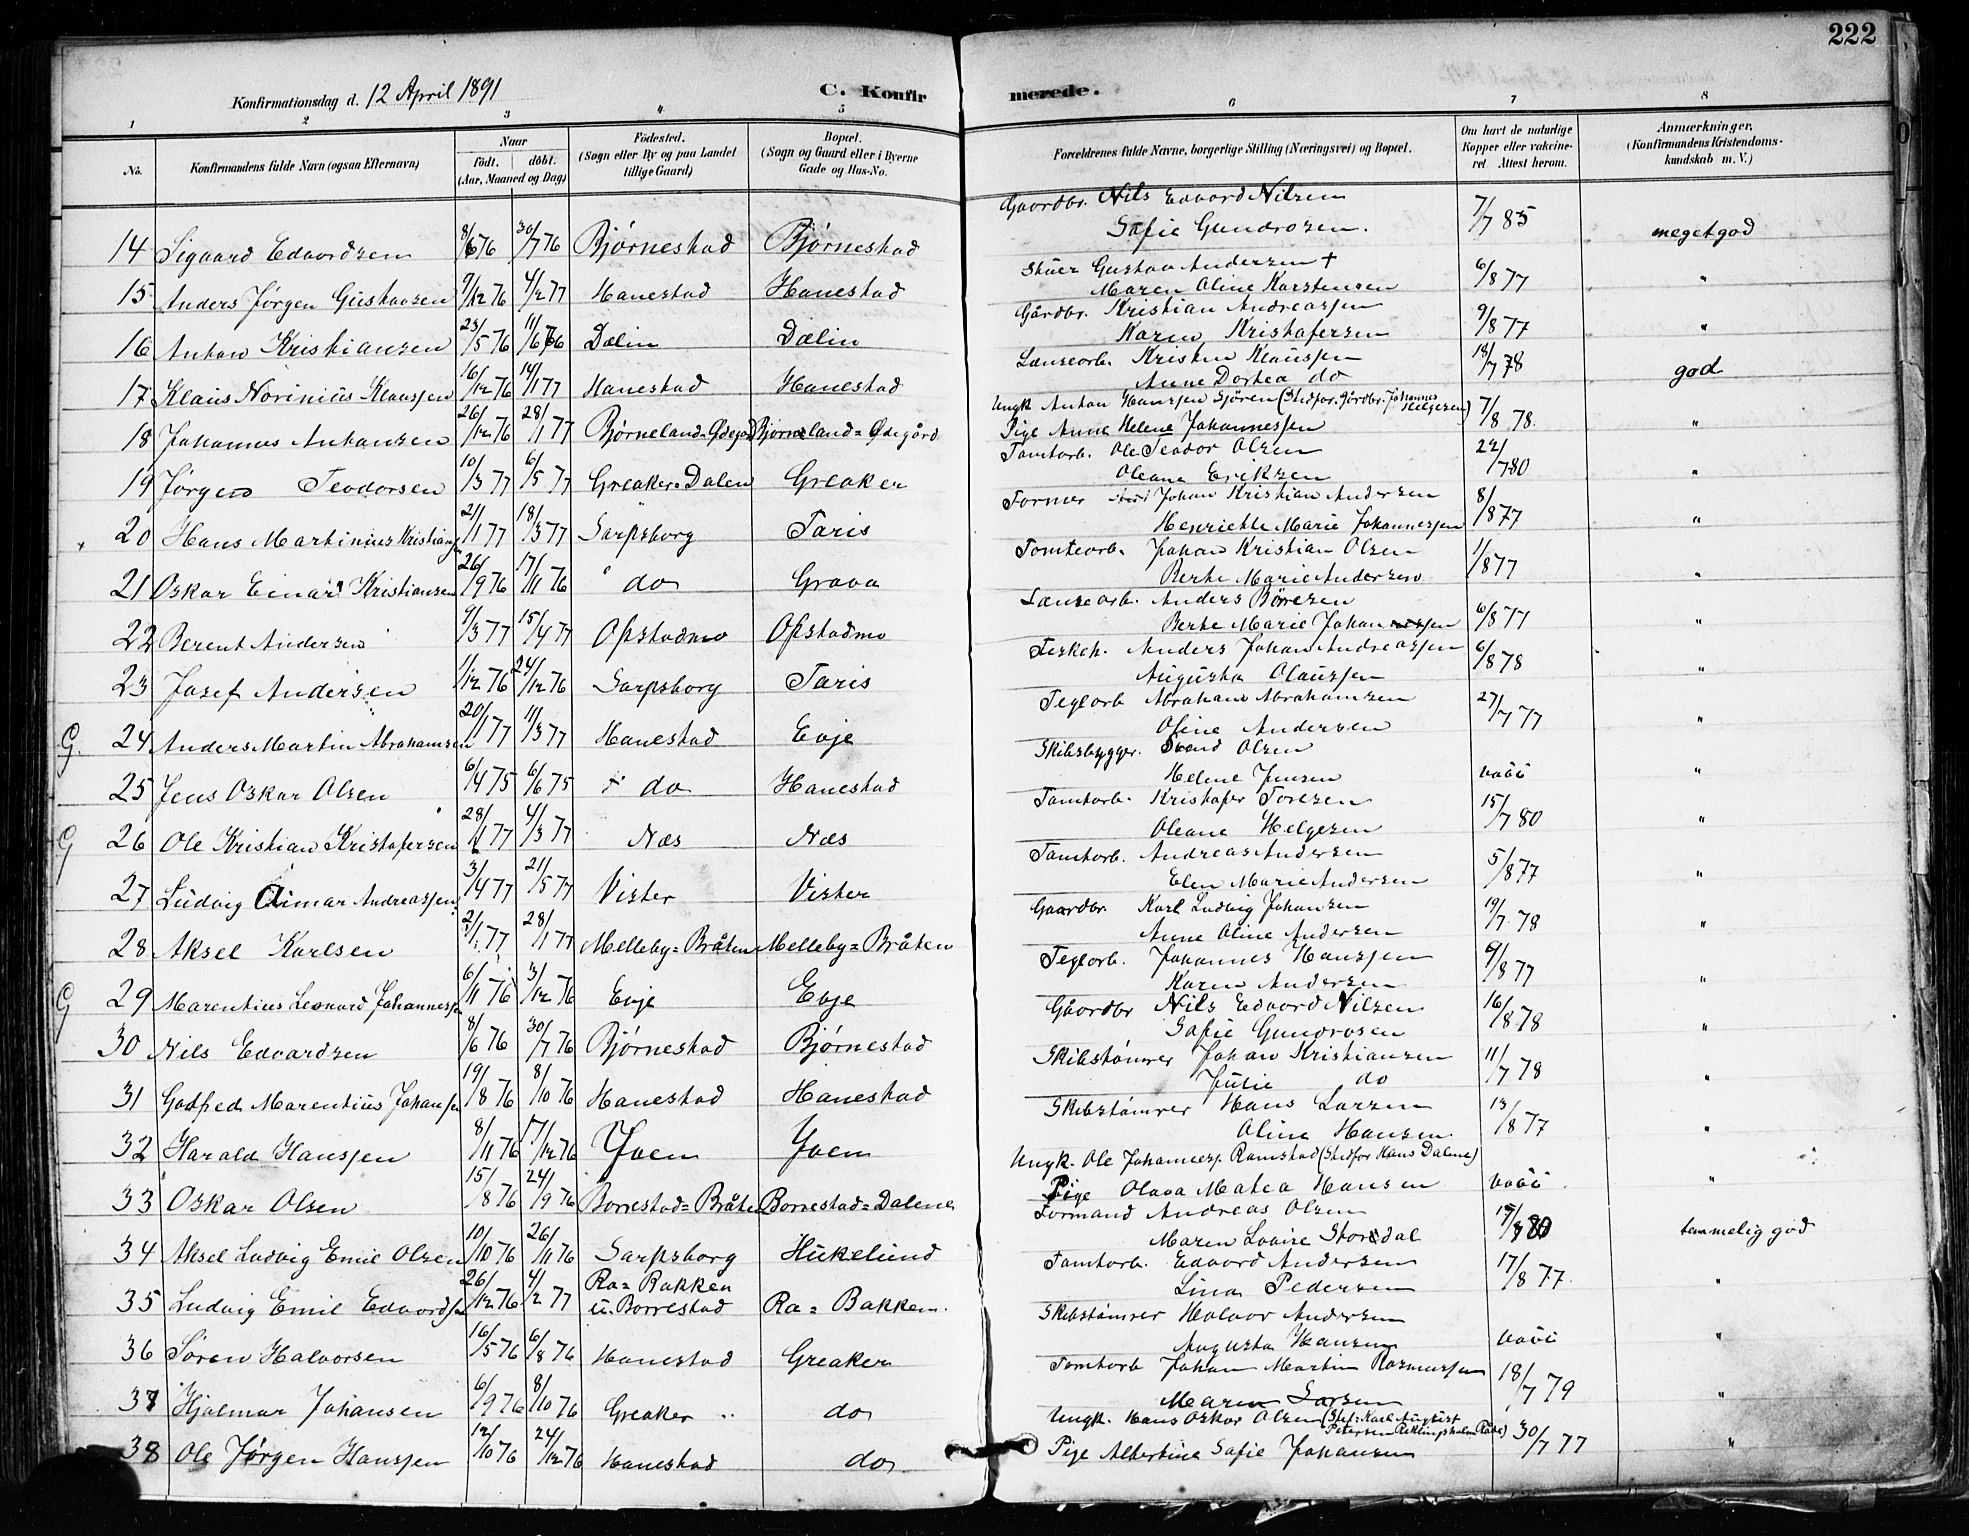 222
Konfirmationsdag d. 12 April 1891
C. Konfirmerede.
1 2 3 4 5 6 7 8
No. Konfirmandens fulde Navn (ogsaa Efternavn) Naar født. døbt. (Aar, Maaned og Dag) Fødested. (Sogn eller By og paa Landet tillige Gaard) Bopæl. (Sogn og Gaard eller i Byerne Gade og Hus-No. Forældrenes fulde Navne, borgerlige Stilling (Næringsvei) og Bopæl. Om havt de naturlige Kopper eller vaccineret Attest herom. Anmærkninger. (Konfirmandens Kristendomskundskab m. V.)
Gaardbr. Nils Edvard Nilsen
14 Sigaard Edvardsen 8/6 76 30/7 76 Bjørnestad Bjørnestad Sofie Gundrosen. 7/7 85 meget god
Gustav Andersen †
15 Anders Jørgen Gustavsen 9/12 76 4/2 77 Hanestad Hanestad Maren Oline Karstensen 6/8 77 "
Gårdbr. Kristian Andreassen
16 Anton Kristiansen 23/5 76 11/6 76 Dælin Dælin Karen Kristofersen 9/8 77 "
Lanseorb. Kristen Klaussen
17 Klaus Norinius Klaussen 16/12 76 14/1 77 Hanestad Hanestad Anne Dortea do 18/7 78 god
Ungk Anton Hanssen Sjøren (Stedfor. Gårdbr. Johannes Helgesen)
18 Johannes Antonsen 26/12 76 28/1 77 Bjørneland=Ødegård Bjørneland=Ødegård Pige Anne Helene Johannessen 7/8 78. "
Tomtorb. Ole Teodor Olsen
19 Jørgen Teodorsen 10/3 77 6/5 77 Greaker=Dalen Greaker Oleana Eriksen 22/7 80 "
Former Johan Kristian Andersen
20 Hans Martinius Kristiansen 2/1 77 18/3 77 Sarpsborg Taris Henriette Marie Johannessen 8/8 77 "
Tomteorb. Johan Kristian Olsen
21 Oskar Einar Kristiansen 26/9 76 17/11 76 do Grava Berte Marie Andersen 1/8 77 "
Lanseorb. Anders Børresen
22 Berent Andersen 9/3 77 15/4 77 Opstadmo Opstadmo Berte Marie Johannessen 6/8 77 "
Fiskeh. Anders Johan Andreassen
23 Josef Andersen 1/12 76 24/12 76 Sarpsborg Taris Augusta Olaussen 6/8 78 "
Teglorb Abraham Abrahamsen
G. 24 Anders Martin Abrahamsen 20/1 77 11/3 77 Hanestad Evje Oline Andersen 27/7 77 "
Skibsbygger. Svend Olsen
25 Jens Oskar Olsen 6/4 75 6/6 75 do Hanestad Helene Jensen "
Tomtorb. Kristofer Toresen
G 26 Ole Kristian Kristofersen 28/1 77 4/3 77 Næs Næs Oleana Helgesen 15/7 80 "
Tomtorb. Andreas Andersen
27 Ludvig Aimar Andreassen 3/4 77 21/5 77 Vister Vister Elen Marie Andersen 5/8 77 "
Gaardbr. Karl Ludvig Johansen
28 Aksel Karlsen 2/1 77 28/1 77 Melleby=Bråten Melleby=Bråten Anne Oline Andersen 19/7 78 "
Teglorb. Johannes Hanssen
G 29 Marentius Leonard Johannessen 6/11 76 3/12 76 Evje Evje Karen Andersen 9/8 77 "
Gåordbr Nils Edvard Nilsen
30 Nils Edvardsen 8/6 76 30/7 76 Bjørnestad Bjørnestad Sofie Gundrosen 16/8 78 "
Skibstømrer Johan Kristiansen
31 Godfred Marentius Johansen 19/8 76 8/10 76 Hanestad Hanestad Julie do 11/7 78 "
Skibstømrer Hans Larsen
32 Harald Hanssen 8/11 76 17/12 76 Yven Yven Oline Hansen 13/8 77 "
Ungk. Ole Johannes. Ramstad (Stedfor Hans Dalene)
33 Oskar Olsen 15/8 76 24/9 76 Borrestad=Bråten Borrestad=Dalene Pige Olava Matea Hansen "
Formand Andreas Olsen
34 Aksel Ludvig Emil Olsen 10/10 76 26/11 76 Sarpsborg Hikelund Maren Lovise Stordal 80 temmelig god
Tomtorb. Edvard Andersen
35 Ludvig Emil Edvardsen 26/12 76 4/2 77 Ra=Bakken u. Borrestad Ra=Bakken. Lina Pedersen 17/8 77. "
Skibstømrer Halvor Andersen
36 Søren Halvorsen 16/5 76 6/8 76 Hanestad Greaker Augusta Hansen "
Tomtorb Johan Martin Rasmussen
37 Hjalmar Johansen 6/9 76 8/10 76 Greaker do Maren Larsen 18/7 79 "
Ungk. Hans Oskar Olsen (Stef: Karl August Petersen Råde)
38 Ole Jørgen Hanssen 12/10 76 24/12 76 Hanestad do Pige Albertine Sofie Johansen 30/7 77 "